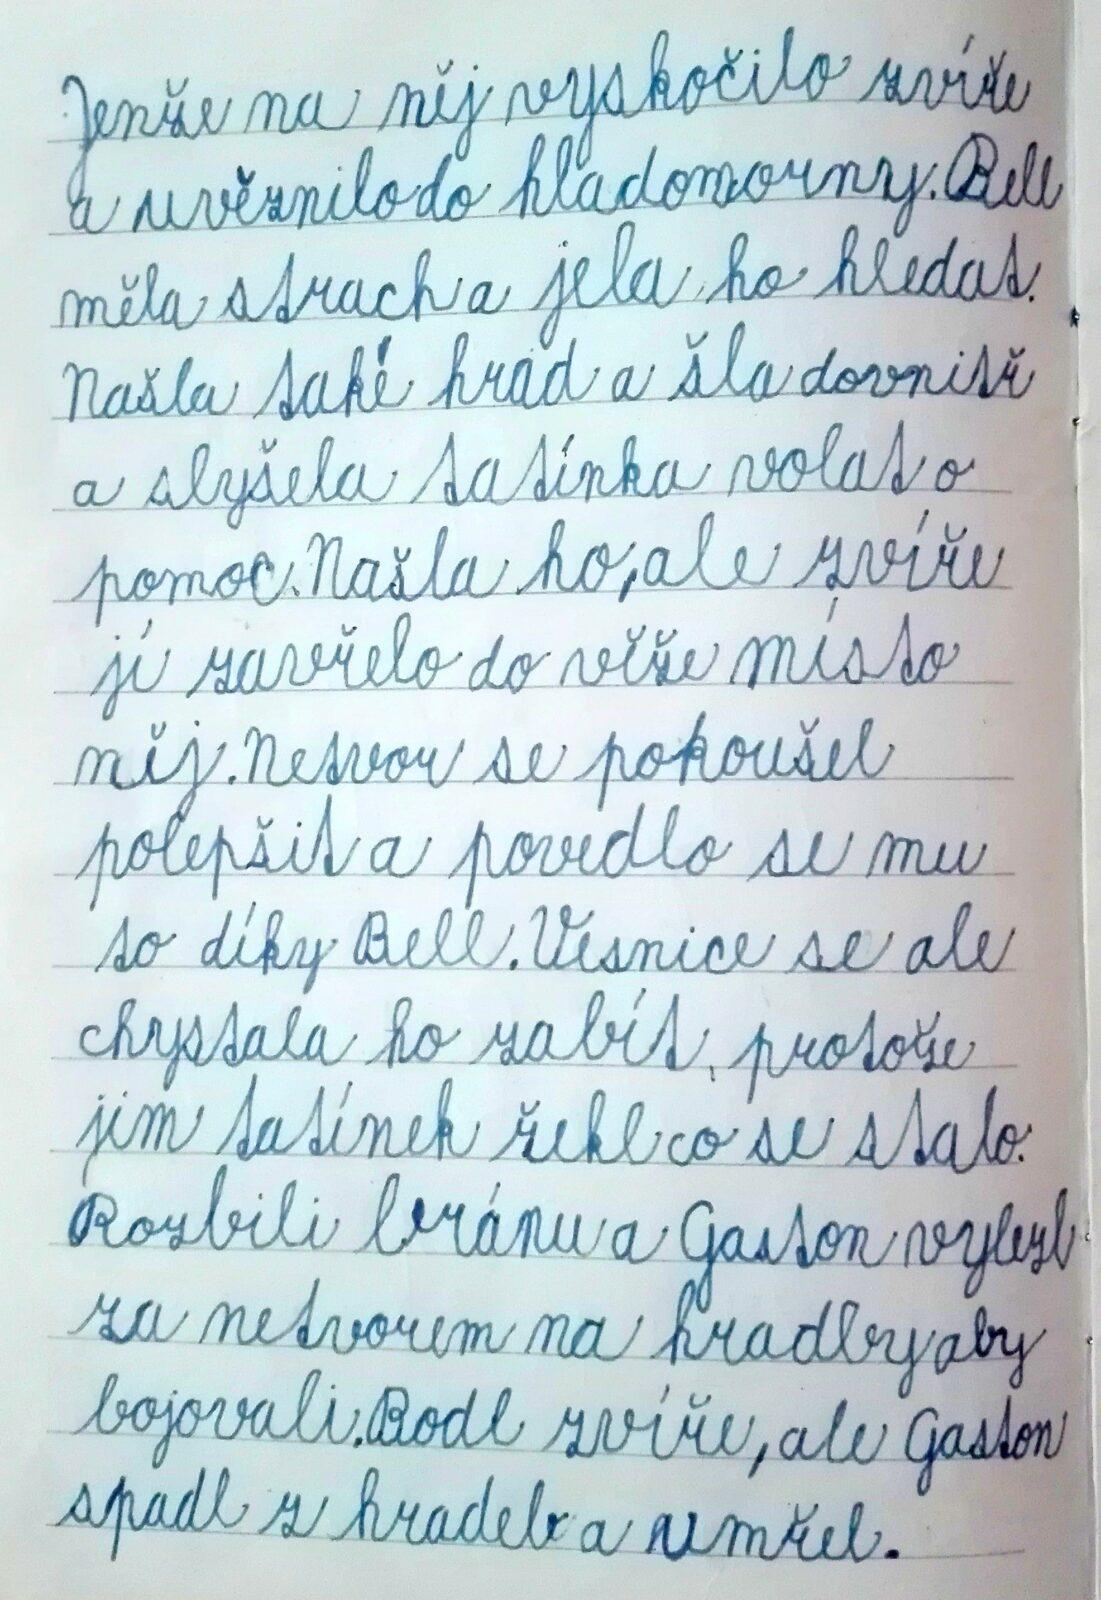 Jenže na něj vyskočilo zvíře
a uvěznilo do hladomorny. Bell
měla strach a jela ho hledat.
Našla také hrad a šla dovnitř
a slyšela tatínka volat o
pomoc. Našla ho, ale zvíře
jí zavřelo do věže místo
něj. Netvor se pokoušel
polepšit a povedlo se mu
to díky Bell. Vesnice se ale
chrystala ho zabít, protože
jim tatínek řekl co se stalo.
Rozbili bránu a Gaston vylezl
za netvorem na hradby aby
bojovali. Bodl zvíře, ale Gaston
spadl z hradeb a umřel.